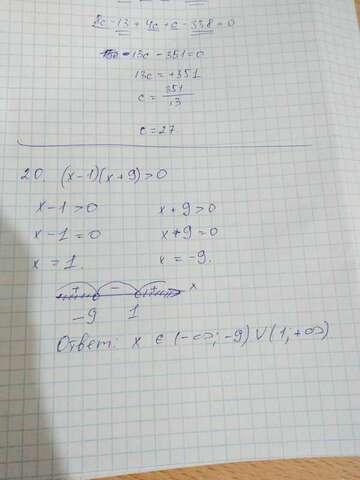 8c - 13 + 4c + c - 338 = 0
13c - 351 = 0
13c = +351
c = 351/13
c = 27
20. (x-1)(x+9)>0
x-1>0 x+9>0
x-1=0 x+9=0
x=1. x=-9.
+ - + x
-9 1
Ответ: x ∈ (-∞; -9) ∪ (1; +∞)